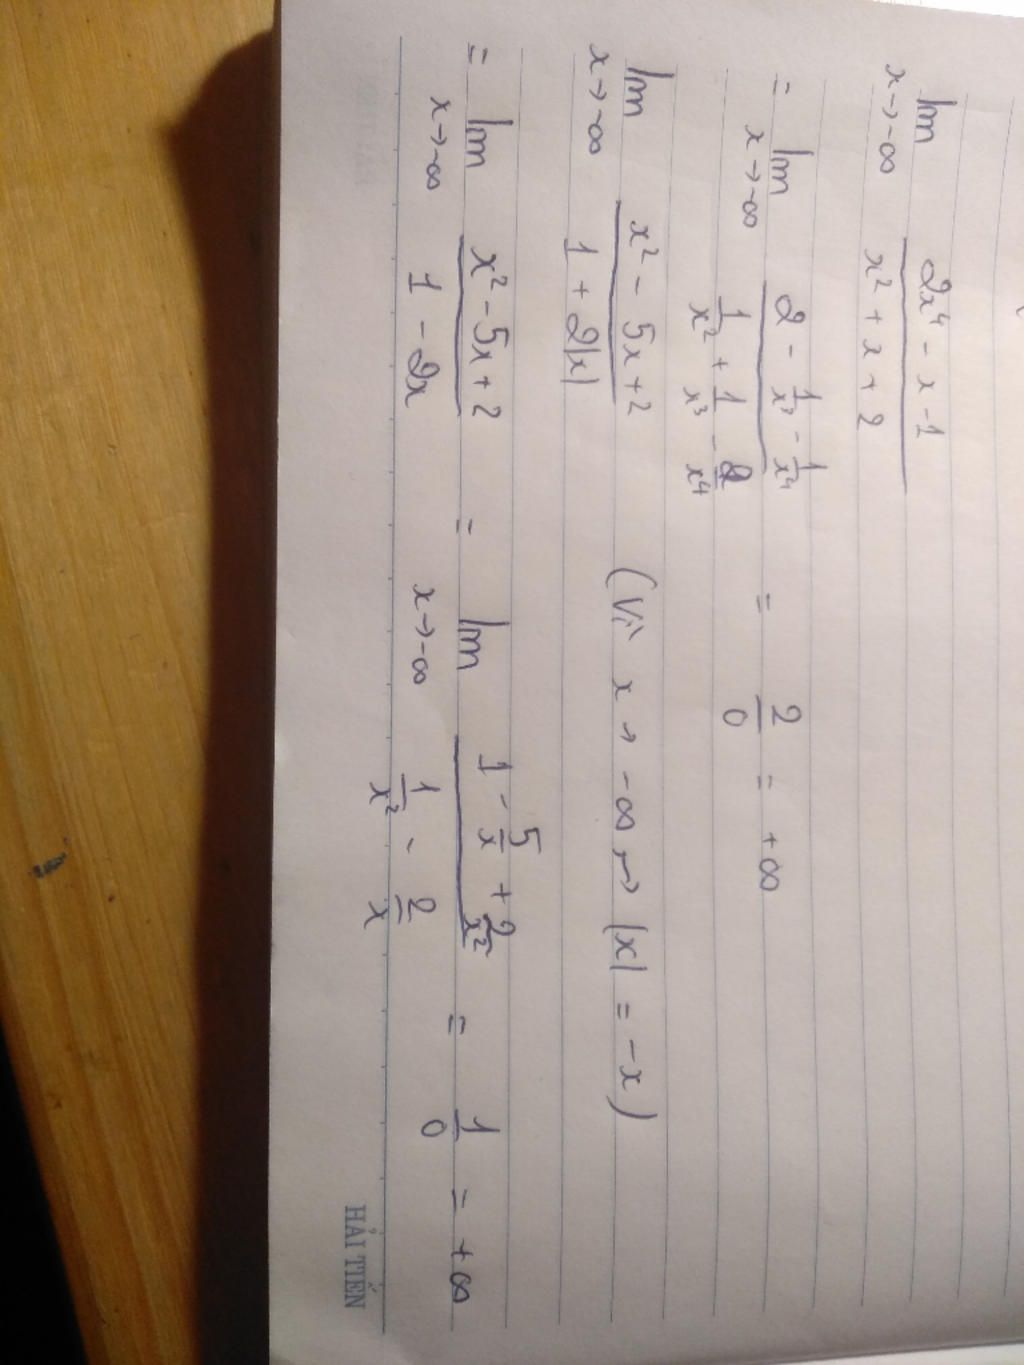 lim x→-∞ (2x⁴ - x - 1)/(x² + x + 2)
= lim x→-∞ (2 - 1/x³ - 1/x⁴)/(1/x² + 1/x³ - 2/x⁴) = 2/0 = +∞
lim x→-∞ (x² - 5x + 2)/(1 + 2|x|) (Vì x → -∞ → |x| = -x)
= lim x→-∞ (x² - 5x + 2)/(1 - 2x) = lim x→-∞ (1 - 5/x + 2/x²)/(1/x² - 2/x) = 1/0 = +∞
HẢI TIẾN